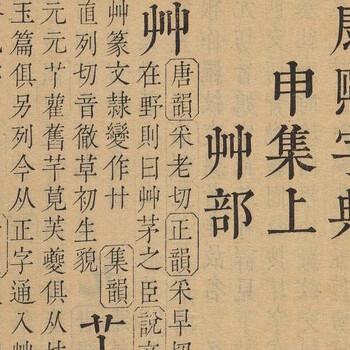 康熙字典
申集上
艸部
艸
唐韻采老切正韻采早切
在野則曰艸茅之臣說文
艸篆文隷變作廾集韻
直列切音徹草初生貌
雚舊芊莧芺夔俱从
玉篇俱另列今从正字通入艸